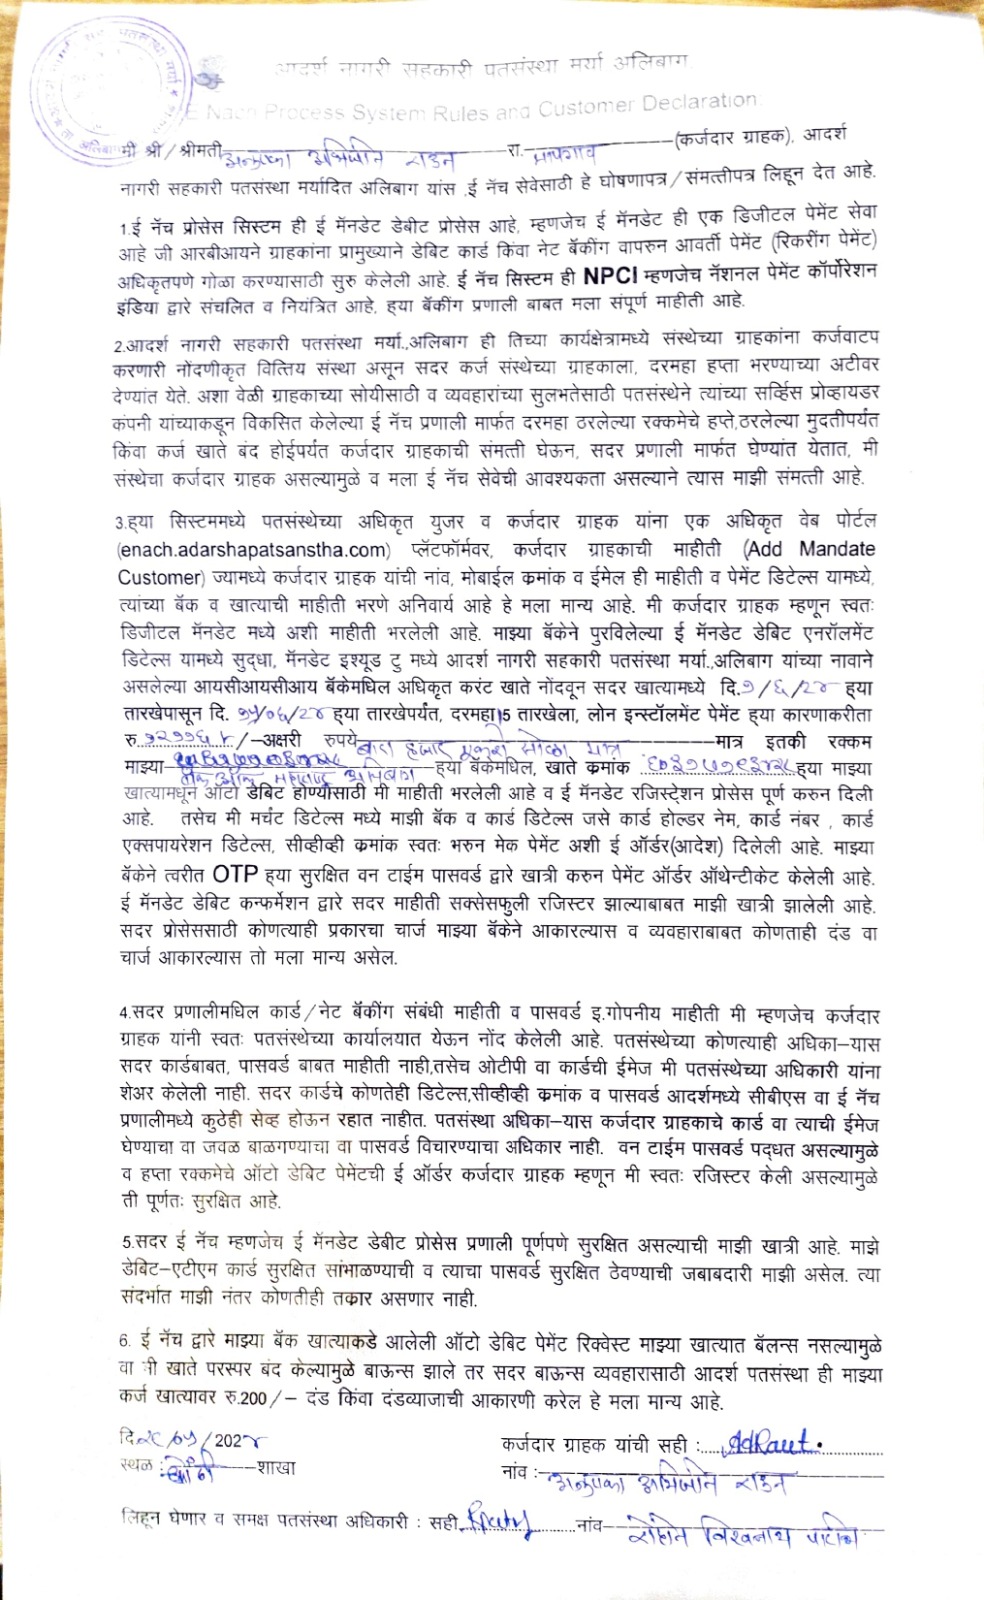 आदर्श नागरी सहकारी पतसंस्था मर्या अलिबाग.
E Nach Process System Rules and Customer Declaration:
मी श्री/श्रीमती अनुष्का अभिजीत राऊत रा. मापगांव (कर्जदार ग्राहक), आदर्श
नागरी सहकारी पतसंस्था मर्यादित अलिबाग यांस ,ई नॅच सेवेसाठी हे घोषणापत्र/संमत्तीपत्र लिहून देत आहे.
1.ई नॅच प्रोसेस सिस्टिम ही ई मॅनडेट डेबीट प्रोसेस आहे, म्हणजेच ई मॅनडेट ही एक डिजीटल पेमेंट सेवा
आहे जी आरबीआयने ग्राहकांना प्रामुख्याने डेबिट कार्ड किंवा नेट बॅकींग वापरुन आवर्ती पेमेंट (रिकरींग पेमेंट)
अधिकृतपणे गोळा करण्यासाठी सुरु केलेली आहे. ई नॅच सिस्टम ही NPCI म्हणजेच नॅशनल पेमेंट कॉर्पोरेशन
इंडिया द्वारे संचलित व नियंत्रित आहे, हया बॅकींग प्रणाली बाबत मला संपूर्ण माहीती आहे.
2.आदर्श नागरी सहकारी पतसंस्था मर्या.,अलिबाग ही तिच्या कार्यक्षेत्रामध्ये संस्थेच्या ग्राहकांना कर्जवाटप
करणारी नोंदणीकृत वित्तिय संस्था असून सदर कर्ज संस्थेच्या ग्राहकाला, दरमहा हप्ता भरण्याच्या अटीवर
देण्यांत येते. अशा वेळी ग्राहकाच्या सोयीसाठी व व्यवहारांच्या सुलभतेसाठी पतसंस्थेने त्यांच्या सर्व्हिस प्रोव्हायडर
कंपनी यांच्याकडून विकसित केलेल्या ई नॅच प्रणाली मार्फत दरमहा ठरलेल्या रक्कमेचे हप्ते,ठरलेल्या मुदतीपर्यंत
किंवा कर्ज खाते बंद होईपर्यंत कर्जदार ग्राहकाची संमत्ती घेऊन, सदर प्रणाली मार्फत घेण्यांत येतात, मी
संस्थेचा कर्जदार ग्राहक असल्यामुळे व मला ई नॅच सेवेची आवश्यकता असल्याने त्यास माझी संमत्ती आहे.
3.हया सिस्टममध्ये पतसंस्थेच्या अधिकृत युजर व कर्जदार ग्राहक यांना एक अधिकृत वेब पोर्टल
(enach.adarshapatsanstha.com) प्लॅटफॉर्मवर, कर्जदार ग्राहकाची माहीती (Add Mandate
Customer) ज्यामध्ये कर्जदार ग्राहक यांची नांव, मोबाईल क्रमांक व ईमेल ही माहीती व पेमेंट डिटेल्स यामध्ये,
त्यांच्या बॅक व खात्याची माहीती भरणे अनिवार्य आहे हे मला मान्य आहे. मी कर्जदार ग्राहक म्हणून स्वतः
डिजीटल मॅनडेट मध्ये अशी माहीती भरलेली आहे. माझ्या बॅकेने पुरविलेल्या ई मॅनडेट डेबिट एनरॉलमेंट
डिटेल्स यामध्ये सुद्धा, मॅनडेट इश्यूड टु मध्ये आदर्श नागरी सहकारी पतसंस्था मर्या.,अलिबाग यांच्या नावाने
असलेल्या आयसीआयसीआय बॅकेमधिल अधिकृत करंट खाते नोंदवून सदर खात्यामध्ये दि.१/६/२४ हया
तारखेपासून दि. १५/०६/२४ हया तारखेपर्यंत, दरमहा 15 तारखेला, लोन इन्स्टॉलमेंट पेमेंट हया कारणाकरीता
रु १२११६/-अक्षरी रुपये बारा हजार एकशे सोळा मात्र मात्र इतकी रक्कम
माझ्या बँक ऑफ महाराष्ट्र अलिबाग हया बॅकेमधिल, खाते क्रमांक हया माझ्या
खात्यामधून ऑटो डेबिट होण्यासाठी मी माहीती भरलेली आहे व ई मॅनडेट रजिस्ट्रेशन प्रोसेस पूर्ण करुन दिली
आहे. तसेच मी मर्चंट डिटेल्स मध्ये माझी बॅक व कार्ड डिटेल्स जसे कार्ड होल्डर नेम, कार्ड नंबर , कार्ड
एक्सपायरेशन डिटेल्स, सीव्हीव्ही क्रमांक स्वतः भरुन मेक पेमेंट अशी ई ऑर्डर(आदेश) दिलेली आहे. माझ्या
बॅकेने त्वरीत OTP हया सुरक्षित वन टाईम पासवर्ड द्वारे खात्री करुन पेमेंट ऑर्डर ऑथेन्टीकेट केलेली आहे.
ई मॅनडेट डेबिट कन्फर्मेशन द्वारे सदर माहीती सक्सेसफुली रजिस्टर झाल्याबाबत माझी खात्री झालेली आहे.
सदर प्रोसेससाठी कोणत्याही प्रकारचा चार्ज माझ्या बॅकेने आकारल्यास व व्यवहाराबाबत कोणताही दंड वा
चार्ज आकारल्यास तो मला मान्य असेल.
4.सदर प्रणालीमधिल कार्ड/नेट बॅकींग संबंधी माहीती व पासवर्ड इ.गोपनीय माहीती मी म्हणजेच कर्जदार
ग्राहक यांनी स्वतः पतसंस्थेच्या कार्यालयात येऊन नोंद केलेली आहे. पतसंस्थेच्या कोणत्याही अधिका–यास
सदर कार्डबाबत, पासवर्ड बाबत माहीती नाही,तसेच ओटीपी वा कार्डची ईमेज मी पतसंस्थेच्या अधिकारी यांना
शेअर केलेली नाही. सदर कार्डचे कोणतेही डिटेल्स,सीव्हीव्ही क्रमांक व पासवर्ड आदर्शमध्ये सीबीएस वा ई नॅच
प्रणालीमध्ये कुठेही सेव्ह होऊन रहात नाहीत. पतसंस्था अधिका–यास कर्जदार ग्राहकाचे कार्ड वा त्याची ईमेज
घेण्याचा वा जवळ बाळगण्याचा वा पासवर्ड विचारण्याचा अधिकार नाही. वन टाईम पासवर्ड पद्धत असल्यामुळे
व हप्ता रक्कमेचे ऑटो डेबिट पेमेंटची ई ऑर्डर कर्जदार ग्राहक म्हणून मी स्वतः रजिस्टर केली असल्यामुळे
ती पूर्णतः सुरक्षित आहे.
5.सदर ई नॅच म्हणजेच ई मॅनडेट डेबीट प्रोसेस प्रणाली पूर्णपणे सुरक्षित असल्याची माझी खात्री आहे. माझे
डेबिट–एटीएम कार्ड सुरक्षित सांभाळण्याची व त्याचा पासवर्ड सुरक्षित ठेवण्याची जबाबदारी माझी असेल. त्या
संदर्भात माझी नंतर कोणतीही तक्रार असणार नाही.
6. ई नॅच द्वारे माझ्या बॅक खात्याकडे आलेली ऑटो डेबिट पेमेंट रिक्वेस्ट माझ्या खात्यात बॅलन्स नसल्यामुळे
वा मी खाते परस्पर बंद केल्यामुळे बाऊन्स झाले तर सदर बाऊन्स व्यवहारासाठी आदर्श पतसंस्था ही माझ्या
कर्ज खात्यावर रु.200/– दंड किंवा दंडव्याजाची आकारणी करेल हे मला मान्य आहे.
दि.२८/०५/2024
कर्जदार ग्राहक यांची सही : AdRaut.
स्थळ : शाखा
नांव : अनुष्का अभिजीत राऊत
लिहून घेणार व समक्ष पतसंस्था अधिकारी : सही नांव रोहीत विश्वनाथ पाटील